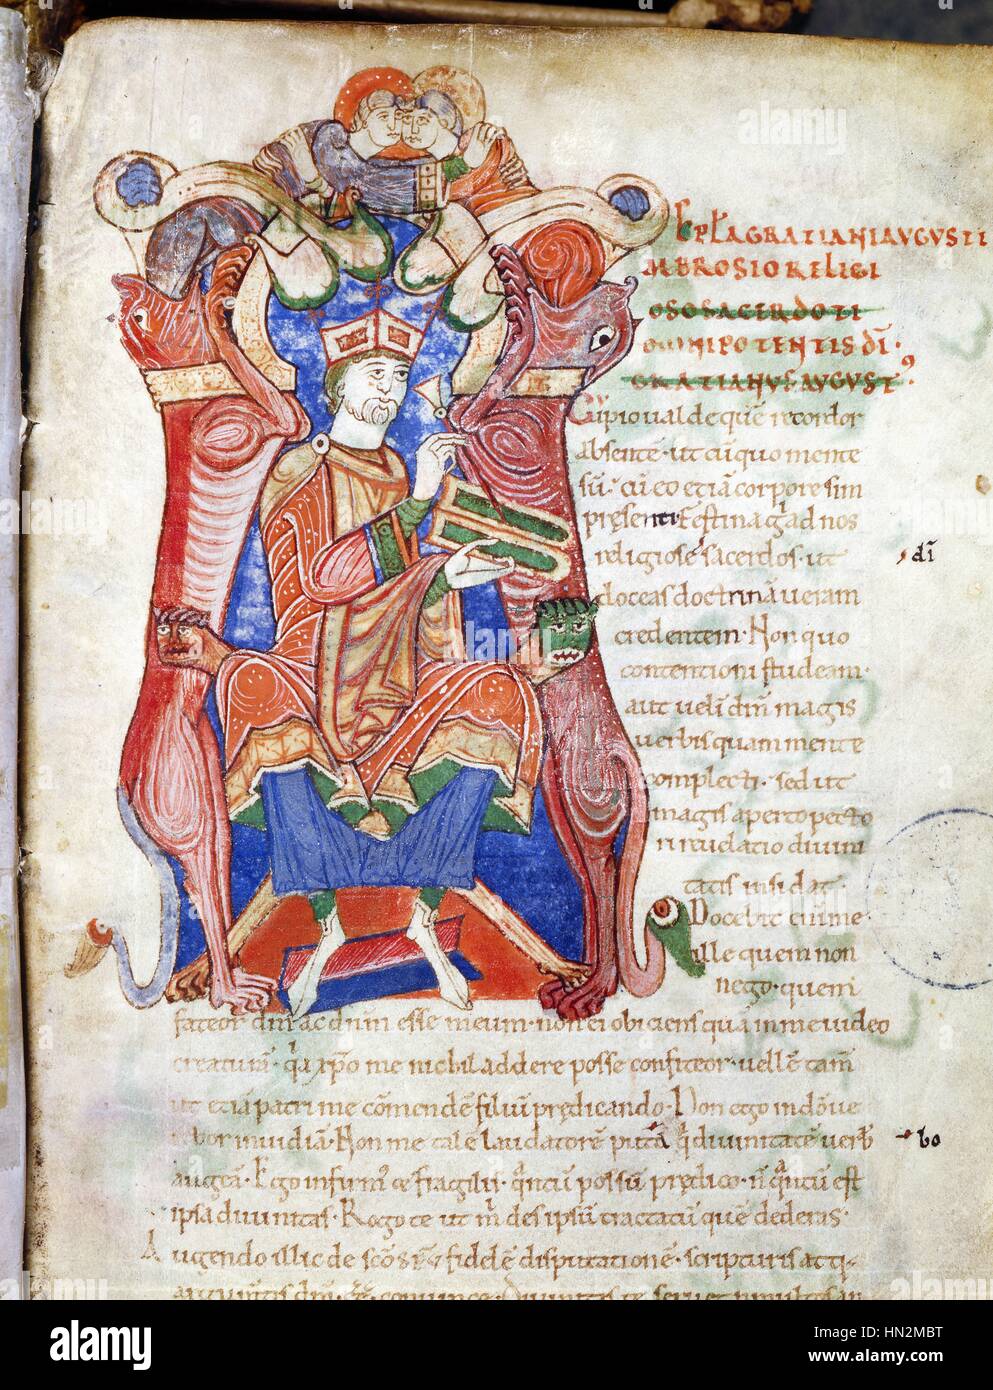 EPLA GRATIANI AVGVSTI
AMBROSIO RELIGI
OSO SACERDOTI
OMNIPOTENTIS DĪ·
GRATIANUS AUGUST'
Cupio ualde quē recordor
absentē· ut cū quo mente
sū· cū eo etiā corpore sim
presenti festina g ad nos
religiose sacerdos· ut
dī
doceas doctrinā ueram
credentem· Non quo
contentioni studeam·
aut uelī dm̄ magis
uerbis quam mente
complecti· sed ut
magis aperto pecto
ri reuelatio diuini
tatis insidat·
Docebit eni me
ille quem non
nego· quem
fateor dm̄ ac dnm̄ esse meum· non ei obiciens quā in me uideo
creaturā· xp̄o me nichil addere posse confiteor· uellē tam̄
ut etiā patri me cōmendē filiū predicando· Non ego in dōue
rebor inuidiā· Non me talē laudatorē putā diuinitatē uerb
bo
augeā· Ego infirm' & fragilis possū predico· est
ipsa diuinitas· Rogo te ut des ipsū tractatū quē dederas·
Augendo illic de sc̄o sp̄u fidelē disputationē· scripturis atq;
alamy
Image ID: HN2MBT
www.alamy.com